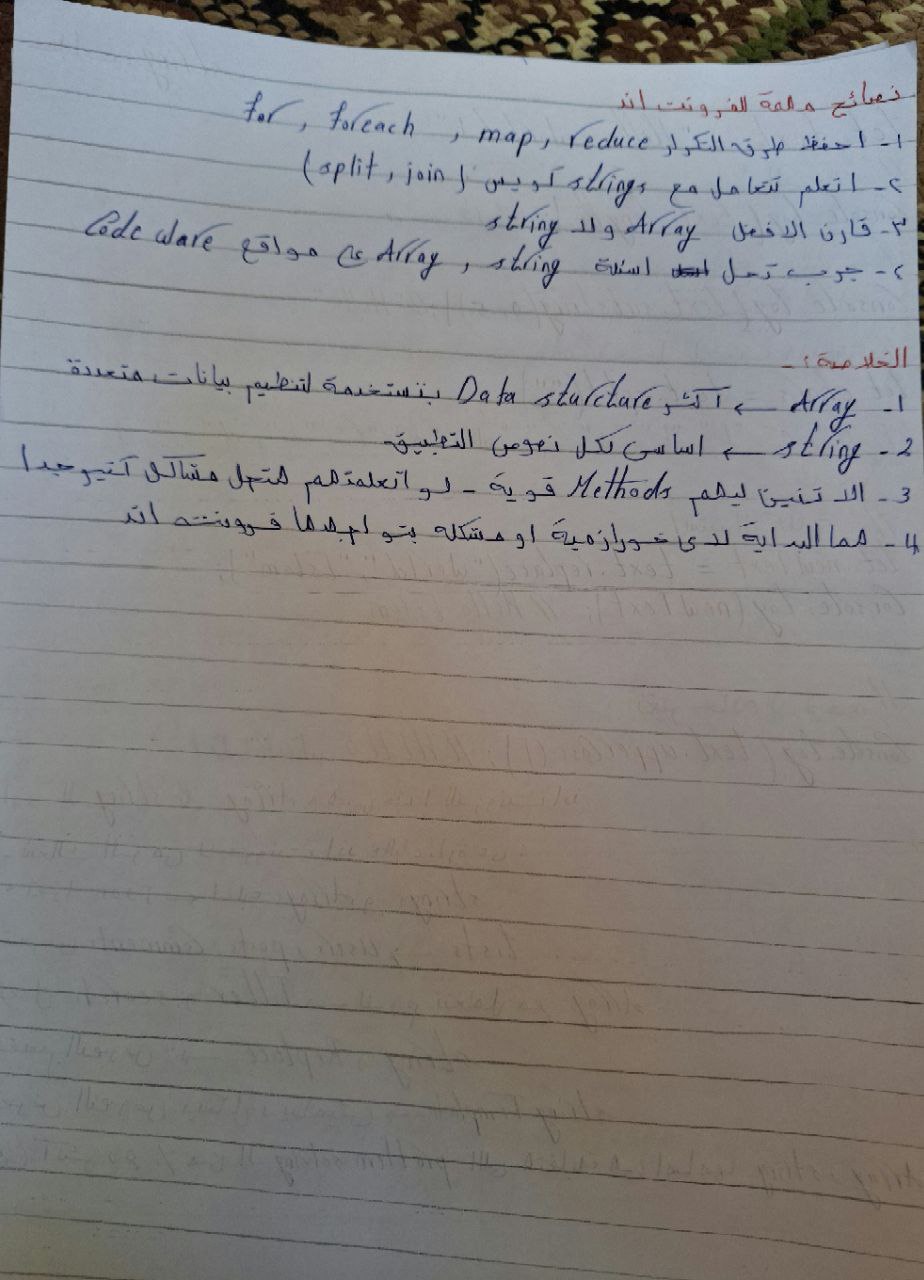 نصائح مهمة للفرونت اند
١- احفظ طرق التكرار for, foreach , map, reduce
٢- اتعلم تتعامل مع strings كويس (split, join)
٣- قارن الافضل Array ولا string
٤- جرب تحل اسئلة Array, string على مواقع Code Ware
الخلاصة :-
1- Array ← أكثر Data sturcture بتستخدمة لتنظيم بيانات متعددة
2- string ← اساسى لكل نصوص التطبيق
3- الاتنين ليهم Methods قوية - لو اتعلمتهم هتحل مشاكل كتير جدا
4- هما البداية لدى خورازمية او مشكله بتواجهها فرونت اند